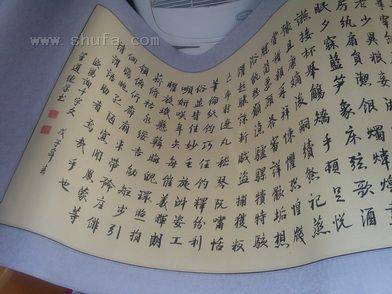 www.shufa.com
房紈扇圓潔銀燭煒煌晝
眠夕寐藍笋象床弦歌酒
讌接杯舉觴矯手頓足悅
豫且康嫡後嗣續祭祀蒸
嘗稽顙再拜悚懼恐惶牋
牒簡要顧答審詳骸垢想
浴執熱願涼驢騾犢特駭
躍超驤誅斬賊盜捕獲叛
亡布射遼丸嵇琴阮嘯恬
筆倫紙鈞巧任釣釋紛利
俗並皆佳妙毛施淑姿工
嚬妍笑年矢每催羲暉朗
曜旋璣懸斡晦魄環照指
薪修祜永綏吉劭矩步引
領俯仰廊廟束帶矜莊徘
徊瞻眺孤陋寡聞愚蒙等
誚謂語助者焉哉乎也
千字文
戊子年